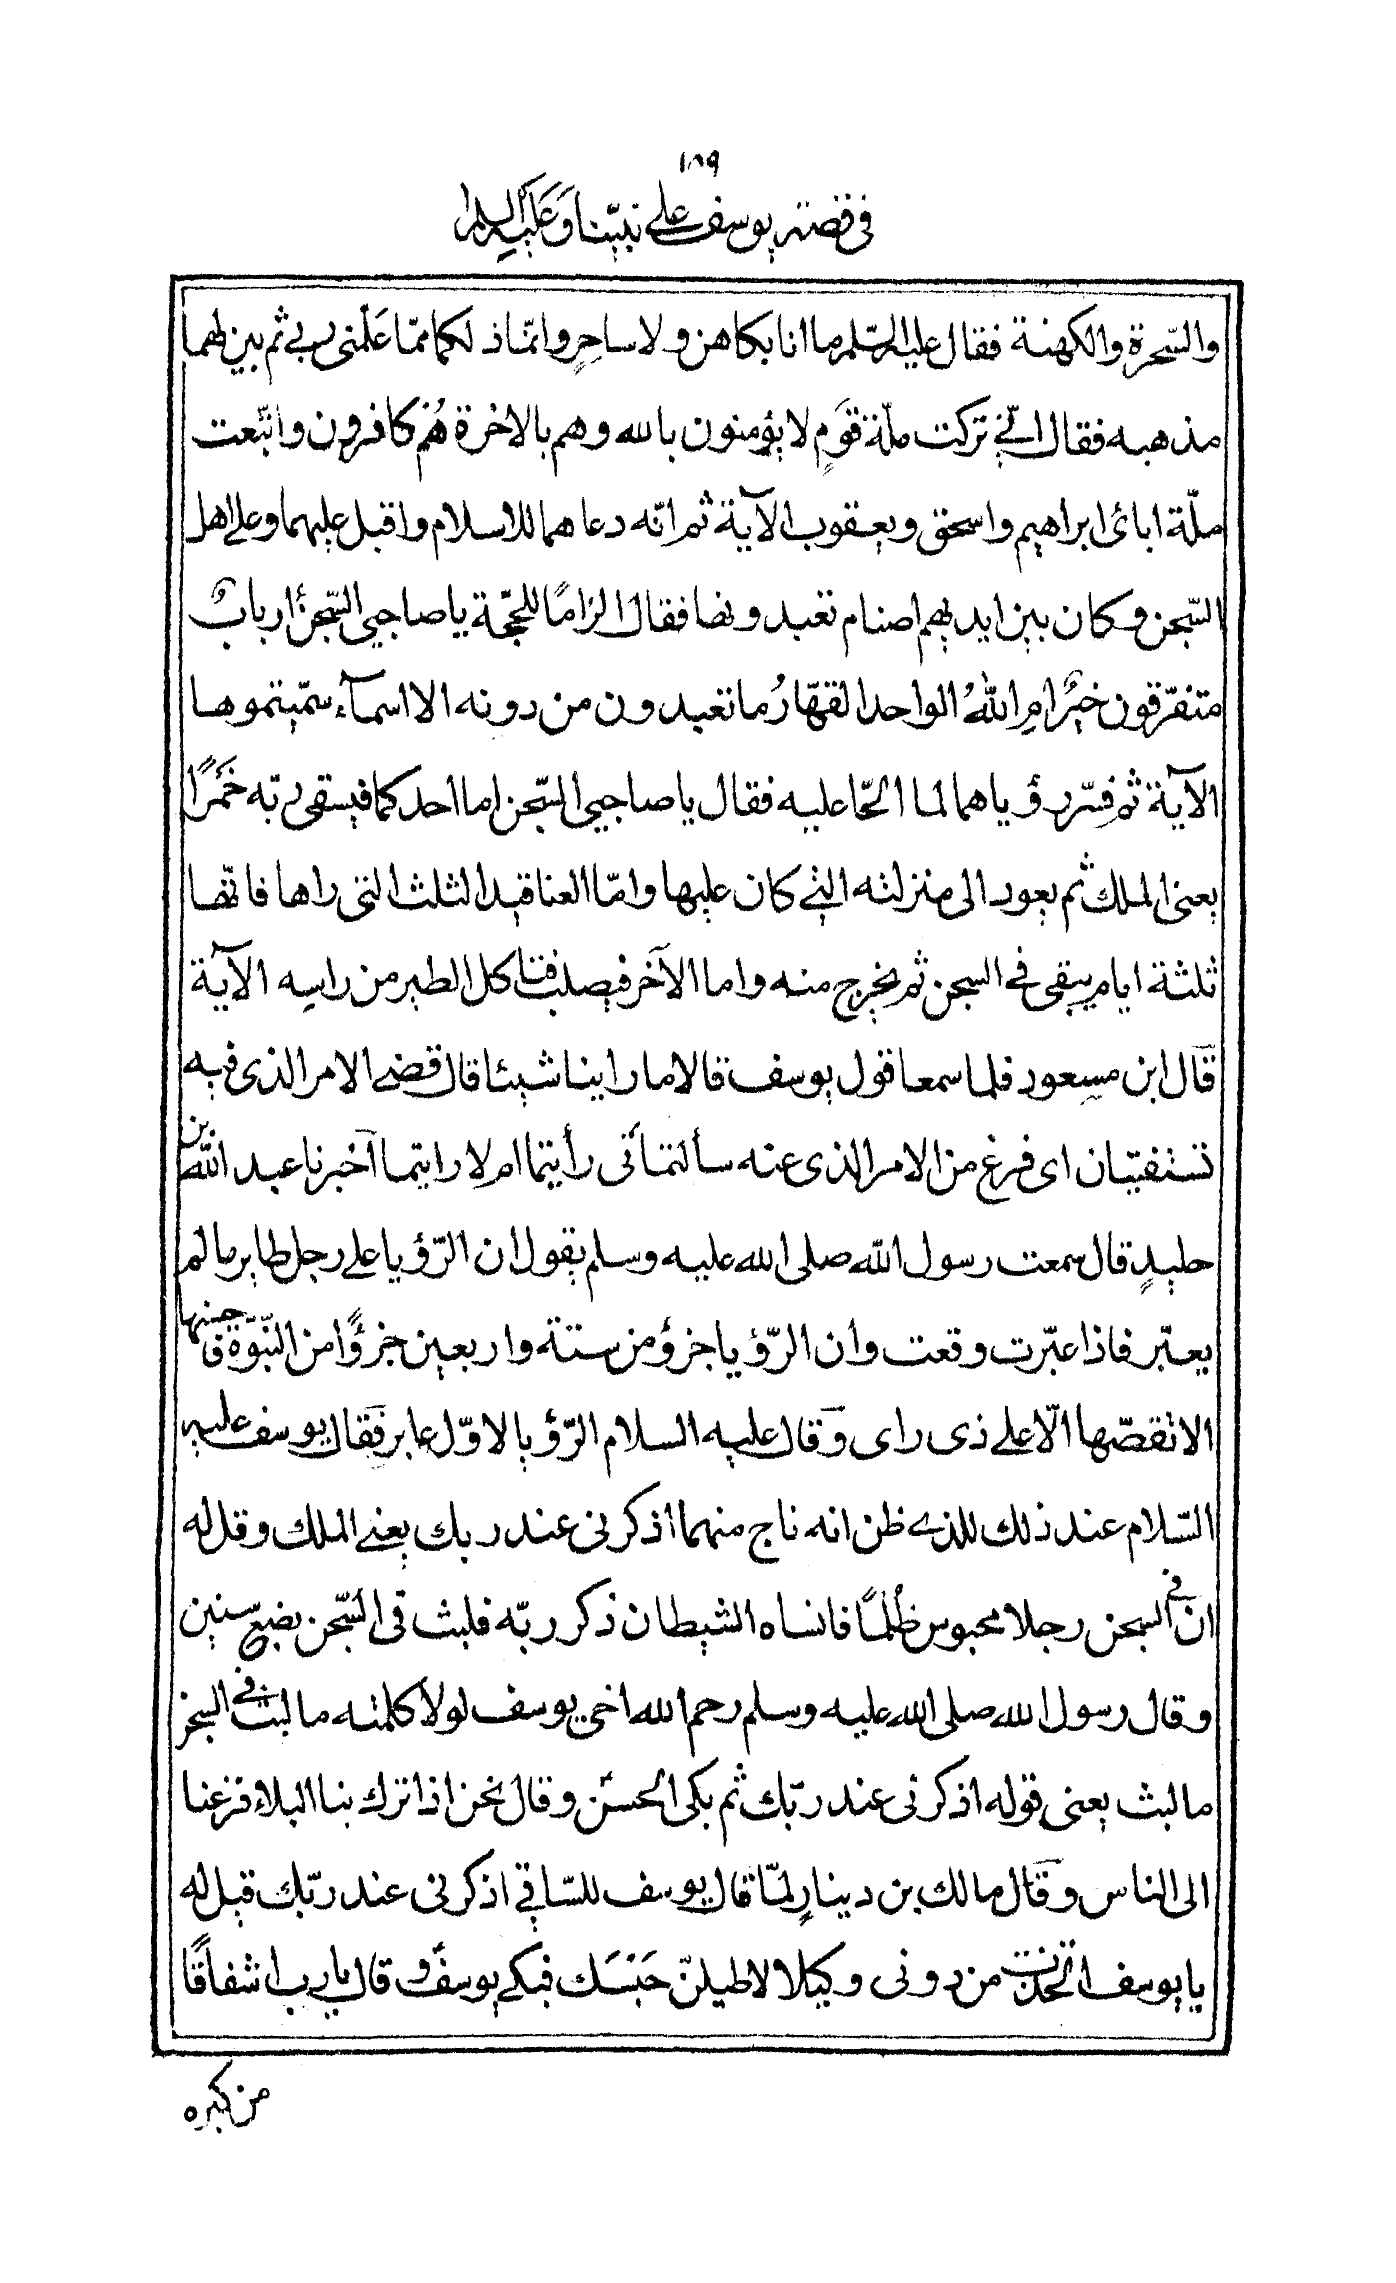 ١٨٩
فى قصة يوسف على نبيّنا وَعَليه السلم
والسّحرة والكهنة فقال عليه السّلم ما انا بكاهن ولا ساحرٍ وانّما ذلكما ممّا عَلّمنى ربى ثم بين لهما
مذهبه فقال انّى تركت ملّة قَومٍ لا يؤمنون بالله وهم بالاخرة هُم كافرون واتّبعت
ملّة ابائى ابراهيم واسحق ويعقوب الآية ثم انّه دعاهما للاسلام واقبل عليهما وعلى اهل
السّجن وكان بين ايديهم اصنام تعبد ونها فقال الزامًا للحجّة يا صاحبى السّجن أارباب
متفرّقون خيرٌ امِ اللهُ الواحد القهّارُ ما تعبدون من دونه الا اسمآء سمّيتموها
الآية ثم فسّر رؤياهما لما الحّا عليه فقال يا صاحبى السّجن اما احدكما فيسقى ربّه خَمرًا
يعنى الملك ثم يعود الى منزلته التى كان عليها وامّا العناقيد الثلث التى راها فانّها
ثلثة ايام يبقى فى السجن ثم يخرج منه واما الآخر فيصلب فتاكل الطير من راسِه الآية
قال ابن مسعود فلما سمعا قول يوسف قالا ما راينا شيئا قال قضى الامر الذى فيه
تستفتيان اى فرغ من الامر الذى عنه سألتمانى رأيتما ام لا رايتما آخبرنا عبد الله بن
حليدٍ قال سمعت رسول الله صلى الله عليه وسلم يقول ان الرّؤيا على رجل طاير ما لم
يعبّر فاذا عبّرت وقعت وأن الرّؤيا جزؤ من ستة واربعين جزؤًا من النّبوّة
الا تقصّها الّا على ذى راى وقال عليه السلام الرّؤيا لاوّل عابر فقال يوسف عليه
السّلام عند ذلك للذى ظن انه ناج منهما اذكرنى عند ربك يعنى الملك وقل له
ان فى السجن رجلا محبوس ظُلمًا فانساه الشيطان ذكر ربّه فلبث فى السّجن بضع سنين
وقال رسول الله صلى الله عليه وسلم رحم الله اخى يوسف لولا كلمته ما لبث فى السجن
ما لبث يعنى قوله اذكرنى عند ربّك ثم بكى الحسن وقال نحن اذا ترك بنا البلاء فزعنا
الى الناس وقال مالك بن دينارٍ لمّا قال يوسف للسّاقى اذكرنى عند ربّك قيل له
يا يوسف اتخذت من دونى وكيلا لاطيلنّ حَبْسَك فبكى يوسف وقال يا رب اشفاقًا
من كبره